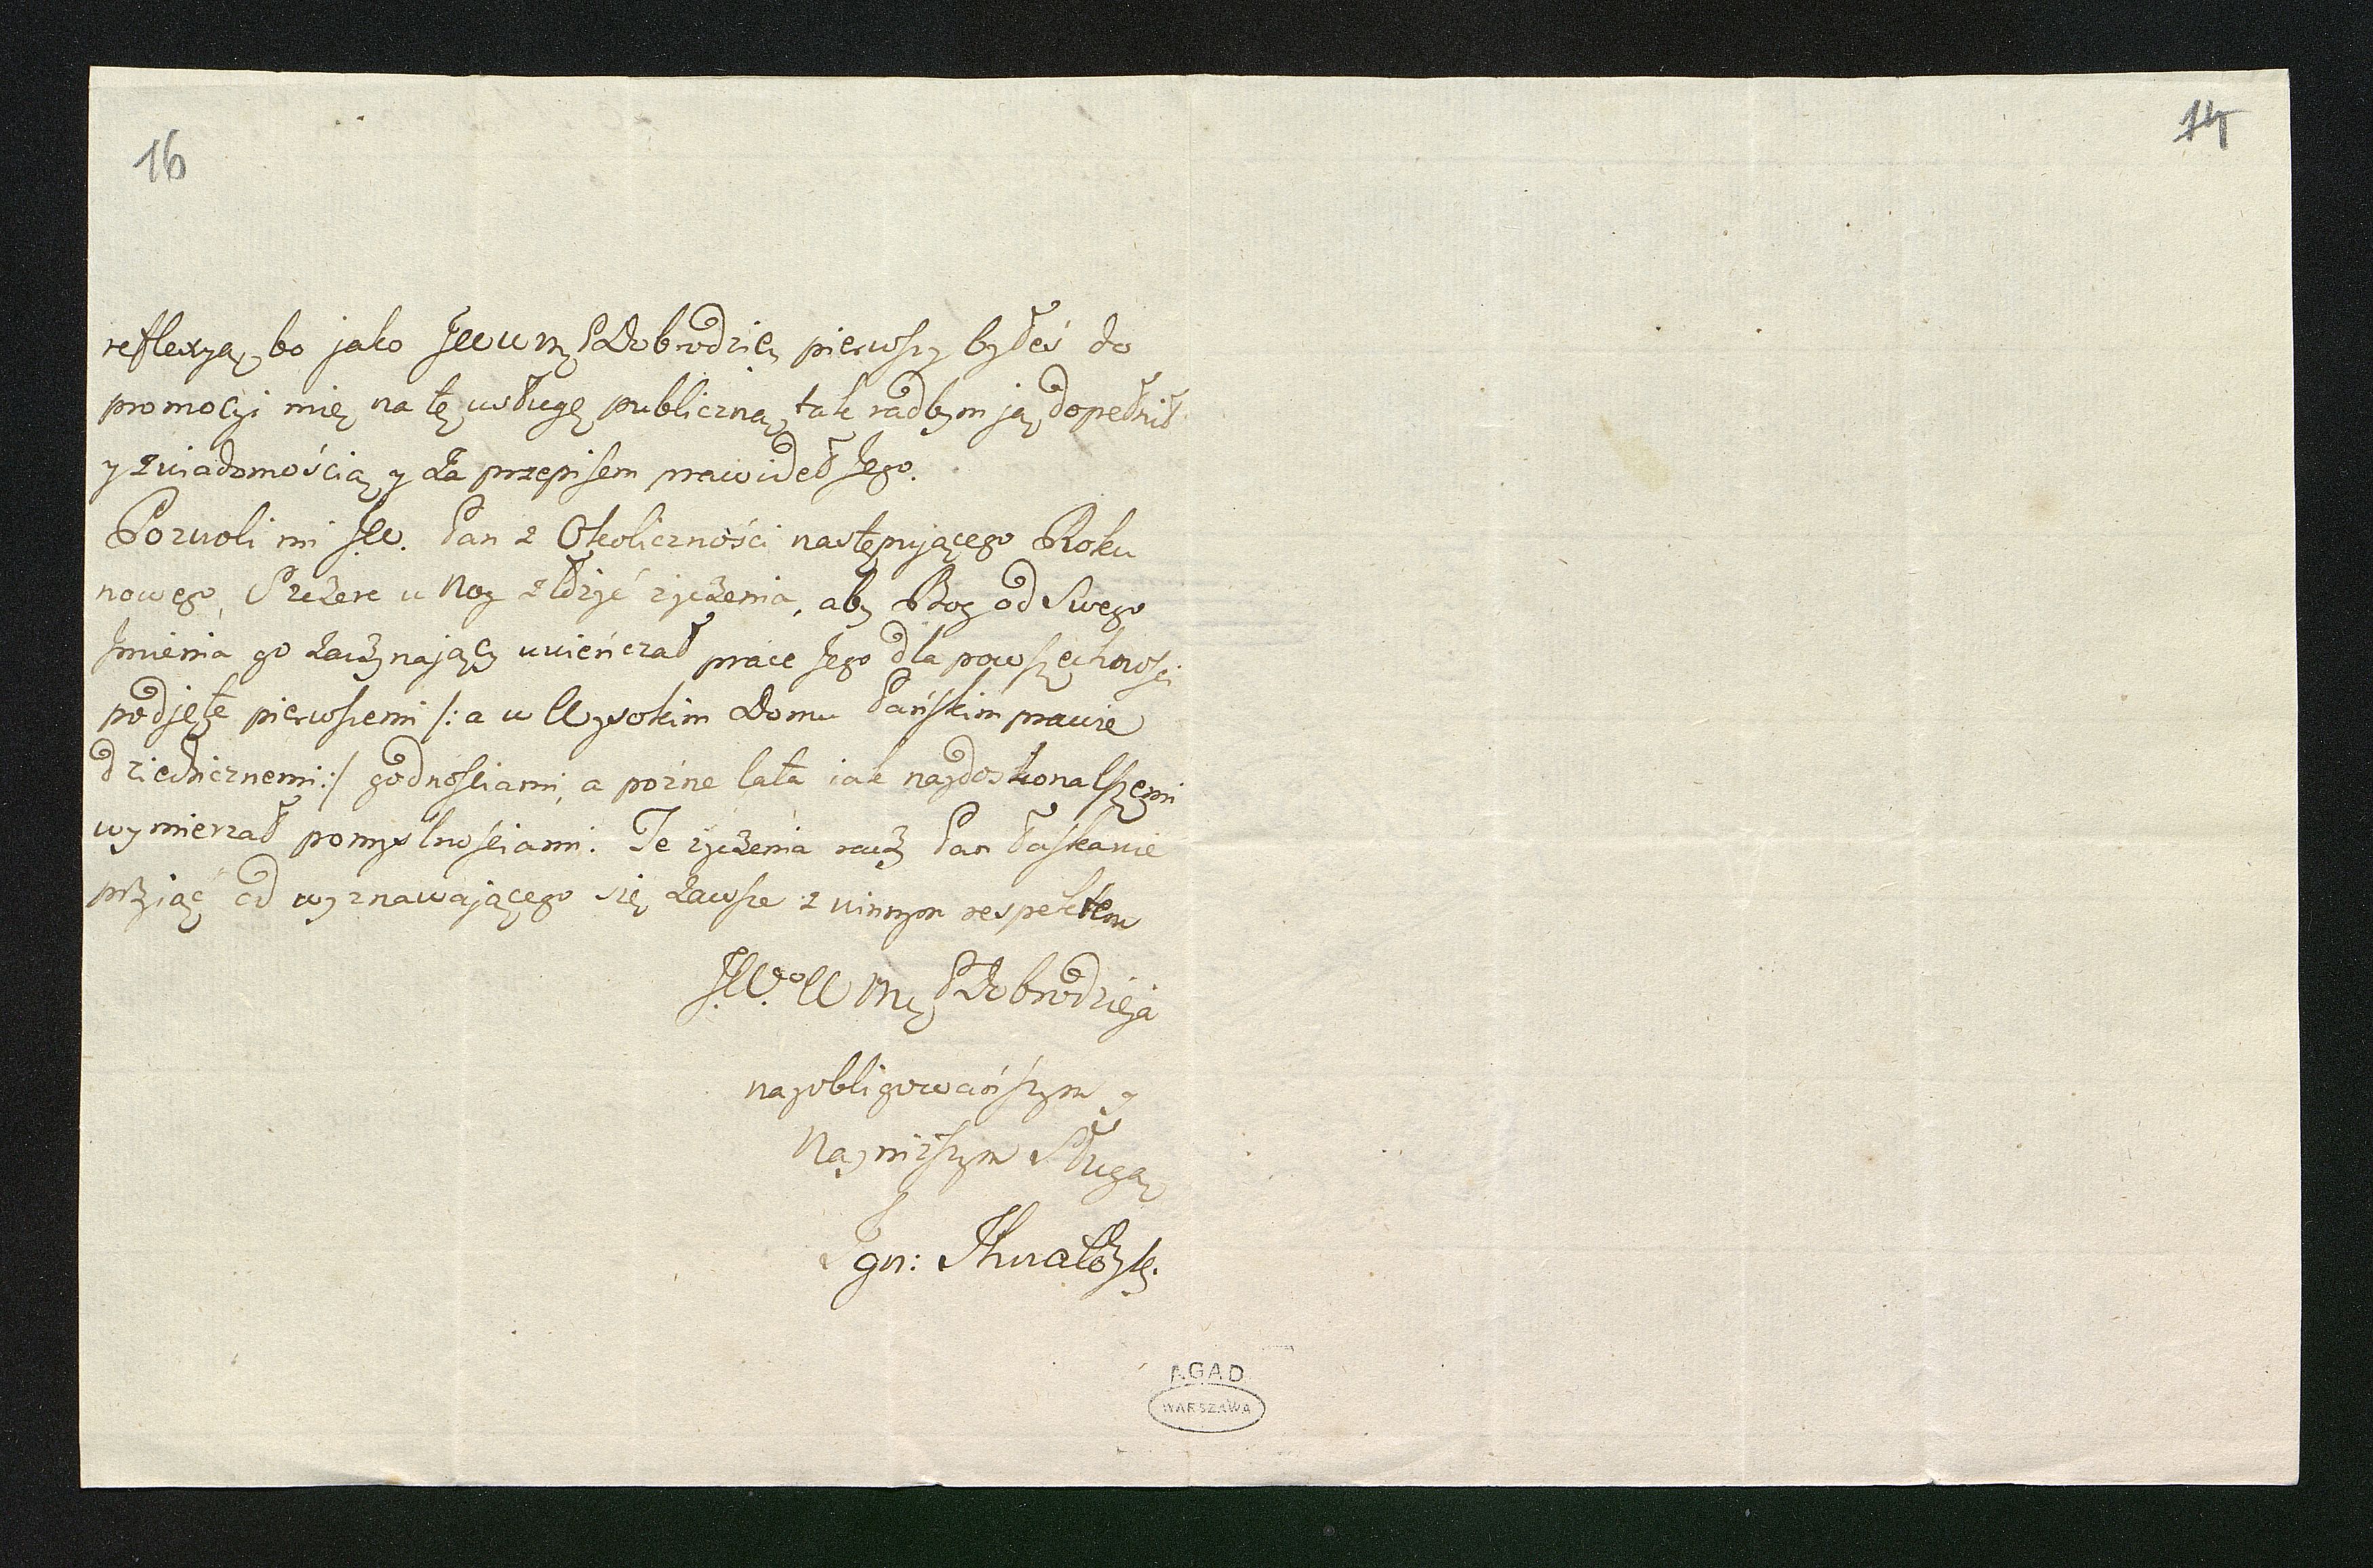 16
14
reflexyą, bo jako JWWMPDobrodziej pierwszy byłeś do
promocyi mię na tę usługę publiczną, tak radbym ją dopełnił
y z wiadomością y za przepisem prawideł Jego.
Pozwoli mi JW. Pan z Okoliczności następującego Roku
nowego, Szczere u Nog złożyć życzenia, aby Bog od Swego
Jmienia go zaczynający uwieńczał prace Jego dla powszechności
podjęte pierwszemi /: a w Wysokim Domu Pańskim prawie
dziedzicznemi :/ godnościami, a poźne lata iak naydoskonalszemi
wymierzał pomyślnościami. Te życzenia racz Pan łaskawie
przyiąć od wyznawającego się zawsze z winnym respektem
JWo W M PDobrodzieja
nayobligowańszym y
Nayniższym Sługą
AGAD
WARSZAWA